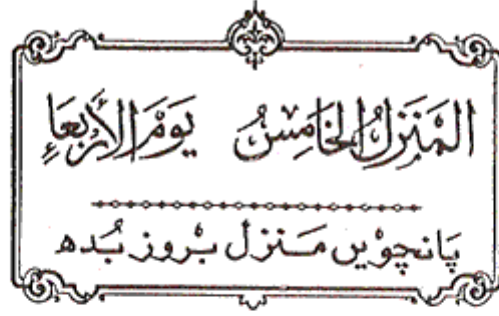 المَنزِلُ الخَامِسُ يَوْمَ الأَرْبَعَاءِ
پَانچوِیں مَنزل بْروز بُدھ